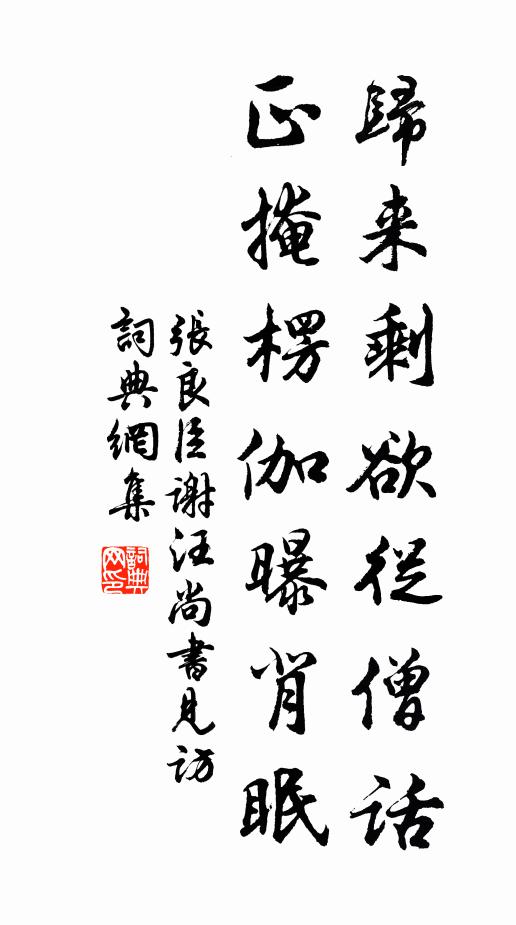 歸来剩欲從僧話
正掩楞伽曝背眠
張良臣謝汪尚書見訪
詞典網集
詞典网印